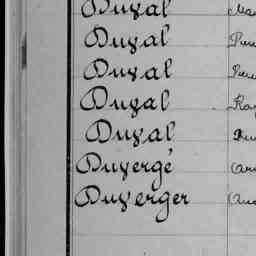 Duval
Duval
Duval
Duval
Duval
Duvergé
Duverger